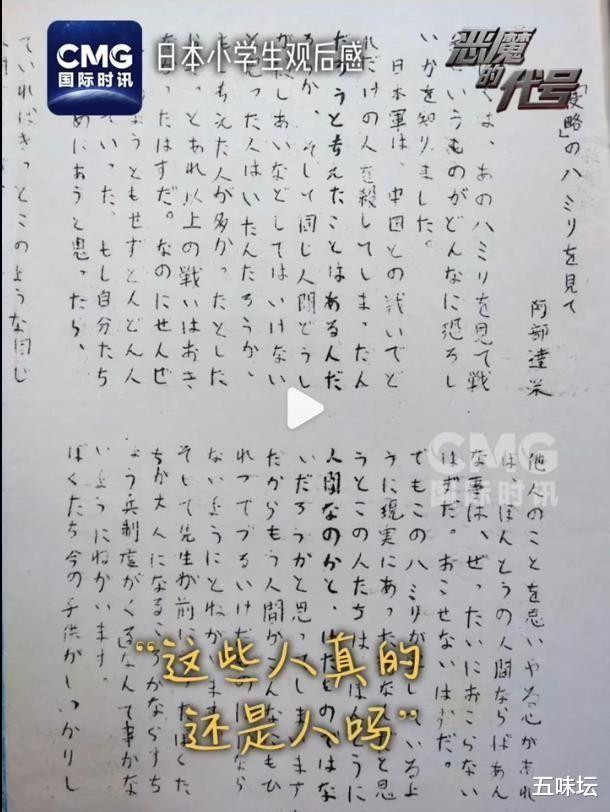 CMG
国际时讯
日本小学生观后感
恶魔的代号
「侵略」のハミリを見て
阿部達栄
くは、あのハミリを見て戦
いうものがどんなに恐ろし
いかを知りました。
日本軍は、中国との戦いでど
れだけの人を殺してしまったん
だろうと考えたことはあるんだ
ろうか。そして同じ人間どうし
しあいなどしてはいけない
と思った人はいたんだろうか、
考えた人が多かったとした
っとあれ以上の戦いはおき
ったはずだ。なのにぜんぜ
ようともせずどんどん人
ていった。もし自分たち
めにあうと思ったら、
ていればきっとこのような同じ
他人のことを思いやる心があれ
ば、ほんとうの人間ならばあん
な事は、ぜったいにおこらない
はずだ。おこせないはずだ。
でもこのハミリが しているよ
うに現実にあった と思
うとこの人たちは ほんとうに
人間なのかと、けだものではな
いだろうかと思ってしまいます
だからもう人間がこんなにもひ
れつでづるいけだ なら
ないようにとねがいます
そして先生が前に たぼくた
ちが大人になるころかならずち
ょう兵制度がくるなんて事がな
いようにねがいます。
ぼくたち今の子供がしっかりし
CMG
国际时讯
“这些人真的
还是人吗”
五味坛